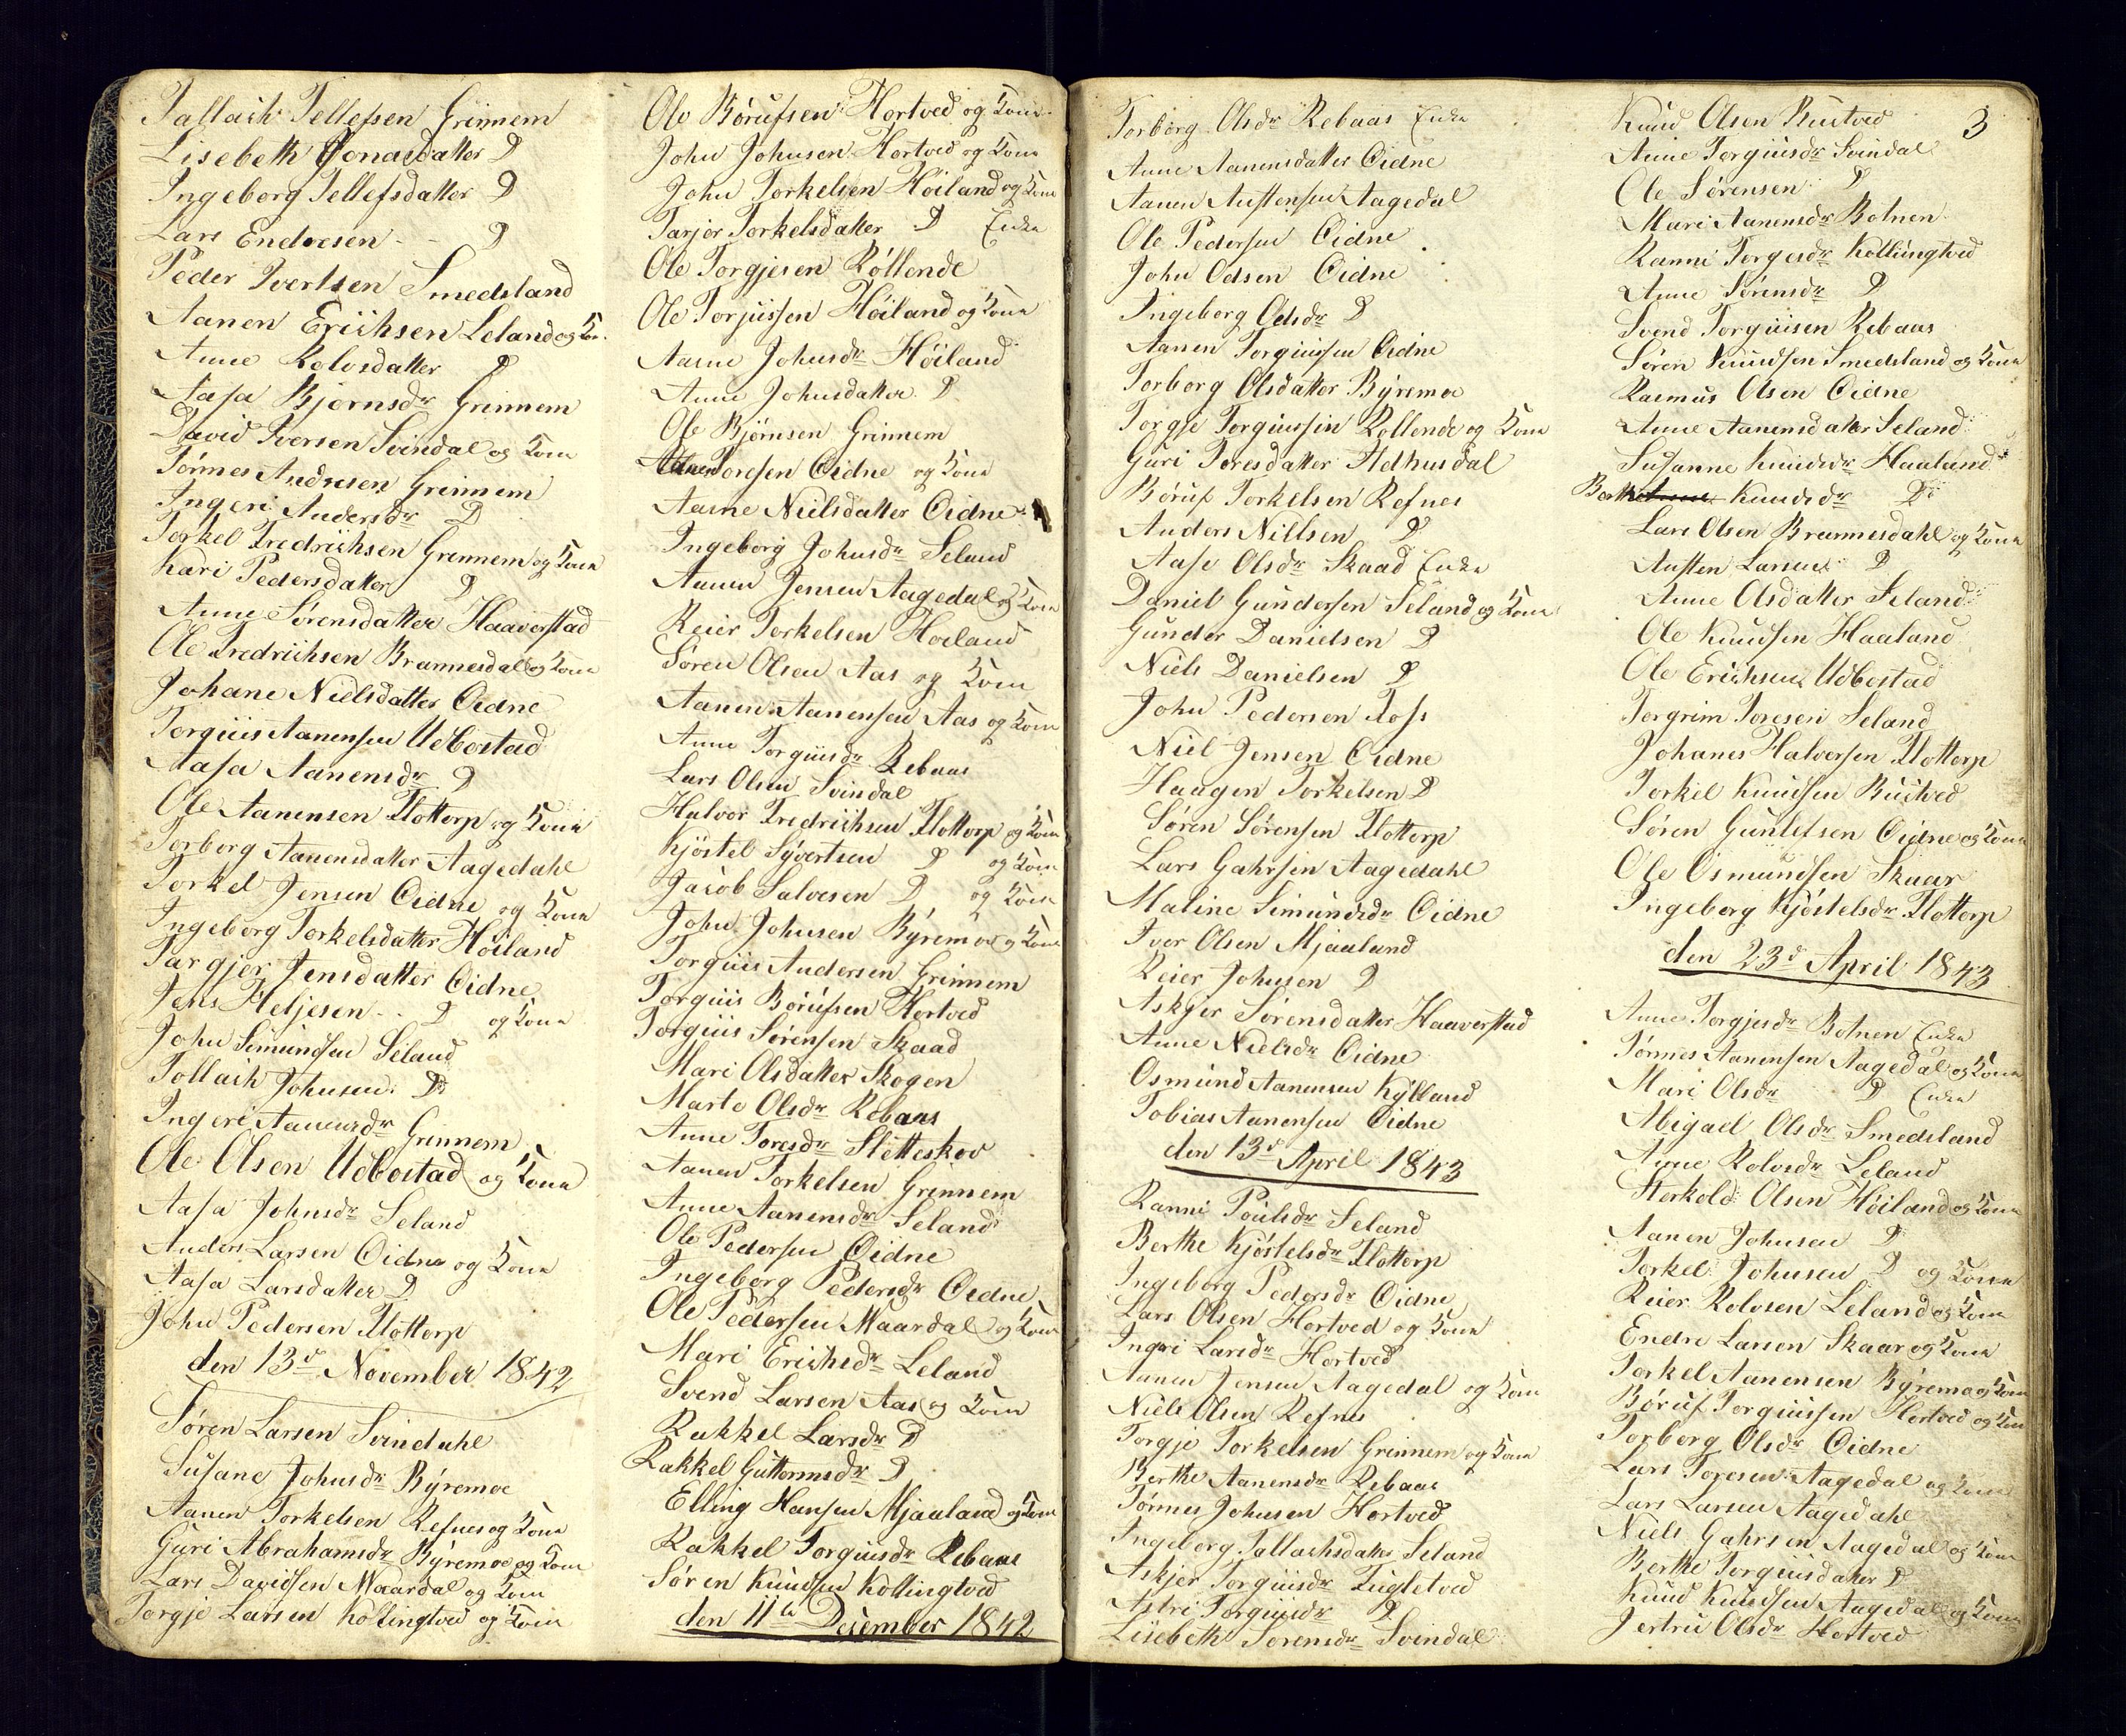 Tallack Tellefsen Grinnem
Lisebeth Jonasdatter D
Ingeborg Tellefsdatter D
Lars Endresen - - D
Peder Ivertsen Smedsland
Aanen Erichsen Leland og Kon.
Anne Rolvsdatter D
Aasa Bjørnsdr Grinnem
David Iversen Svindal og Kone
Tønnes Andresen Grinnem
Ingeri Andersdr D
Torkel Fredrichsen Grinnem og Kone
Kari Pedersdatter D
Anne Sørensdatter Haaverstad
Ole Fredrichsen Brunnesdal og Kone
Johane Nielsdatter Oidne
Torgiius Aanensen Udbostad
Aasa Aanensdr D
Ole Aanensen Flottorp og Kone
Torborg Aanensdatter Aagedahl
Torkel Jensen Oidne og Kone
Ingeborg Torkelsdatter Høiland
Targjer Jensdatter Oidne
Jens Heljesen - - D og Kone
John Simundsen Seland
Tollack Johnsen D
Ingeri Aanensdr Grinnem
Ole Olsen Udbostad og Kone
Aasa Johnsdr Seland
Anders Larsen Oidne og Kone
Aasa Larsdatter D
John Pedersen Flottorp
den 13de November 1842
Søren Larsen Svindahl
Susane Johnsdr Býremoe
Aanen Torkelsen Refnes og Kone
Guri Abrahamsdr Býremoe og Kone
Lars Davidsen Maardal og Kone
Torgje Larsen Kollingtved og Kone
Ole Børufsen Hortved og Kone
John Johnsen Hortved og Kone
John Torkelsen Høiland og Kone
Tarjer Torkelsdatter D Enke
Ole Torgjesen Røllende
Ole Torjussen Høiland og Kone
Aasne Johnsdr Høiland
Anne Johnsdatter D
Ole Bjørnsen Grinnem
Toresen Oidne og Kone
Aasne Nielsdatter Oidne
Ingeborg Johnsdr Seland
Aanen Jensen Aagedal og Kone
Reier Torkelsen Høiland
Søren Olsen Aas og Kone
Aanen Aanensen Aas og Kone
Anne Torgiusdr Rebaas
Lars Olsen Svindal
Halvor Fredrichsen Flottorp og Kone
Kjøstel Sývertsen D og Kone
Jacob Salvesen D og Kone
John Johnsen Býremoe og Kone
Torgiius Andersen Grinnem
Torgiius Børufsen Hortved
Torgiius Sørensen Skaad
Mari Olsdatter Skogen
Marte Olsdr Rebaas
Anne Toresdr Sletteskov
Aanen Torkelsen Grinnem
Anne Aanensdr Seland
Ole Pedersen Oidne
Ingeborg Pedersdr Oidne
Ole Pedersen Maardal og Kone
Mari Erichsdr Leland
Svend Larsen Aas og Kone
Rakkel Larsdr D
Rakkel Guttormsdr D
Elling Hansen Mjaaland og Kone
Rakkel Torgiusdr Rebaas
Søren Knudsen Kollingtved
den 11te Desember 1842
Torborg Olsdr Rebaas Enke
Anne Aanensdatter Oidne
Aanen Austensen Aagedal
Ole Pedersen Oidne
John Odsen Oidne
Ingeborg Odsdr D
Aanen Torgiussen Oidne
Torborg Olsdatter Býremoe
Torgje Torgiussen Rollende og Kone
Guri Toresdatter Aldhusdal
Børuf Torkelsen Refnes
Anders Nillsen D
Aase Olsdr Skaad Enke
Daniel Gundersen Seland og Kone
Gunder Danielsen D
Niels Danielsen D
John Pedersen Foss
Niel Jensen Oidne
Haagen Torkelsen D
Søren Sørensen Flottorp
Lars Gahrsen Aagedahl
Maline Simundsdr Oidne
Iver Olsen Mjaaland
Reier Johnsen D
Askjer Sørensdatter Haaverstad
Anne Nielsdr Oidne
Osmund Aanensen Kýlland
Tobias Aanensen Oidne
den 13de April 1843
Ranni Poulsdr Seland
Berthe Kjøstelsdr Flottorp
Ingeborg Pedersdr Oidne
Lars Olsen Hortved og Kone
Ingeri Larsdr Hortved
Aanen Jensen Aagedal og Kone
Niels Olsen Refnes
Torgje Torkelsen Grinnem og Kone
Berthe Aanensdr Rebaas
Tønnes Johnsen Hortved
Ingeborg Tallachsdatter Seland
Askjer Torgiusdr Fugletved
Astri Torgiusdr D
Lisebeth Sorensdr Svindal
3
Knud Olsen Rustved
Anne Torgiusdr Svindal
Ole Sørensen D
Mari Aanensdr Botnen
Ranni Torgesdr Kollungtved
Anne Sørensdr D
Svend Torguisen Rebaas
Søren Knudsen Smedsland og Kone
Rasmus Olsen Oidne
Anne Aanensdatter Seland
Susanne Knudsdr Haaland
Berthe Knudsdr D
Lars Olsen Brunnesdahl og Kone
Austen Larsen D
Anne Olsdatter Seland
Ole Knudsen Haaland
Ole Erichsen Udbostad
Torgrim Toresen Seland
Johanes Halvorsen Flottorp
Torkel Knudsen Rustved
Søren Gunlefsen Oidne og Kone
Ole Osmundsen Skaar
Ingeborg Kjøstelsdr Flottorp
den 23de April 1843
Anne Torgjesdr Botnen Enke
Tønnes Aanensen Aagedal og Kone
Mari Olsdr D Enke
Abigael Olsdr Smedsland
Anne Rolvsdr Leland
Storkold Olsen Høiland og Kone
Aanen Johnsen D
Torkel Johnsen D og Kone
Reier Rolvsen Leland og Kone
Endre Larsen Skaar og Kone
Torkel Aanensen Býremo og Kone
Børuf Torguissen Hortved og Kone
Torborg Olsdr Oidne
Lars Toresen Aagedal og Kone
Lars Larsen Aagedahl
Niels Gahrsen Aagedal og Kone
Berthe Torguisdatter D
Knud Knudsen Aagedal og Kone
Jertru Olsdr Hortved